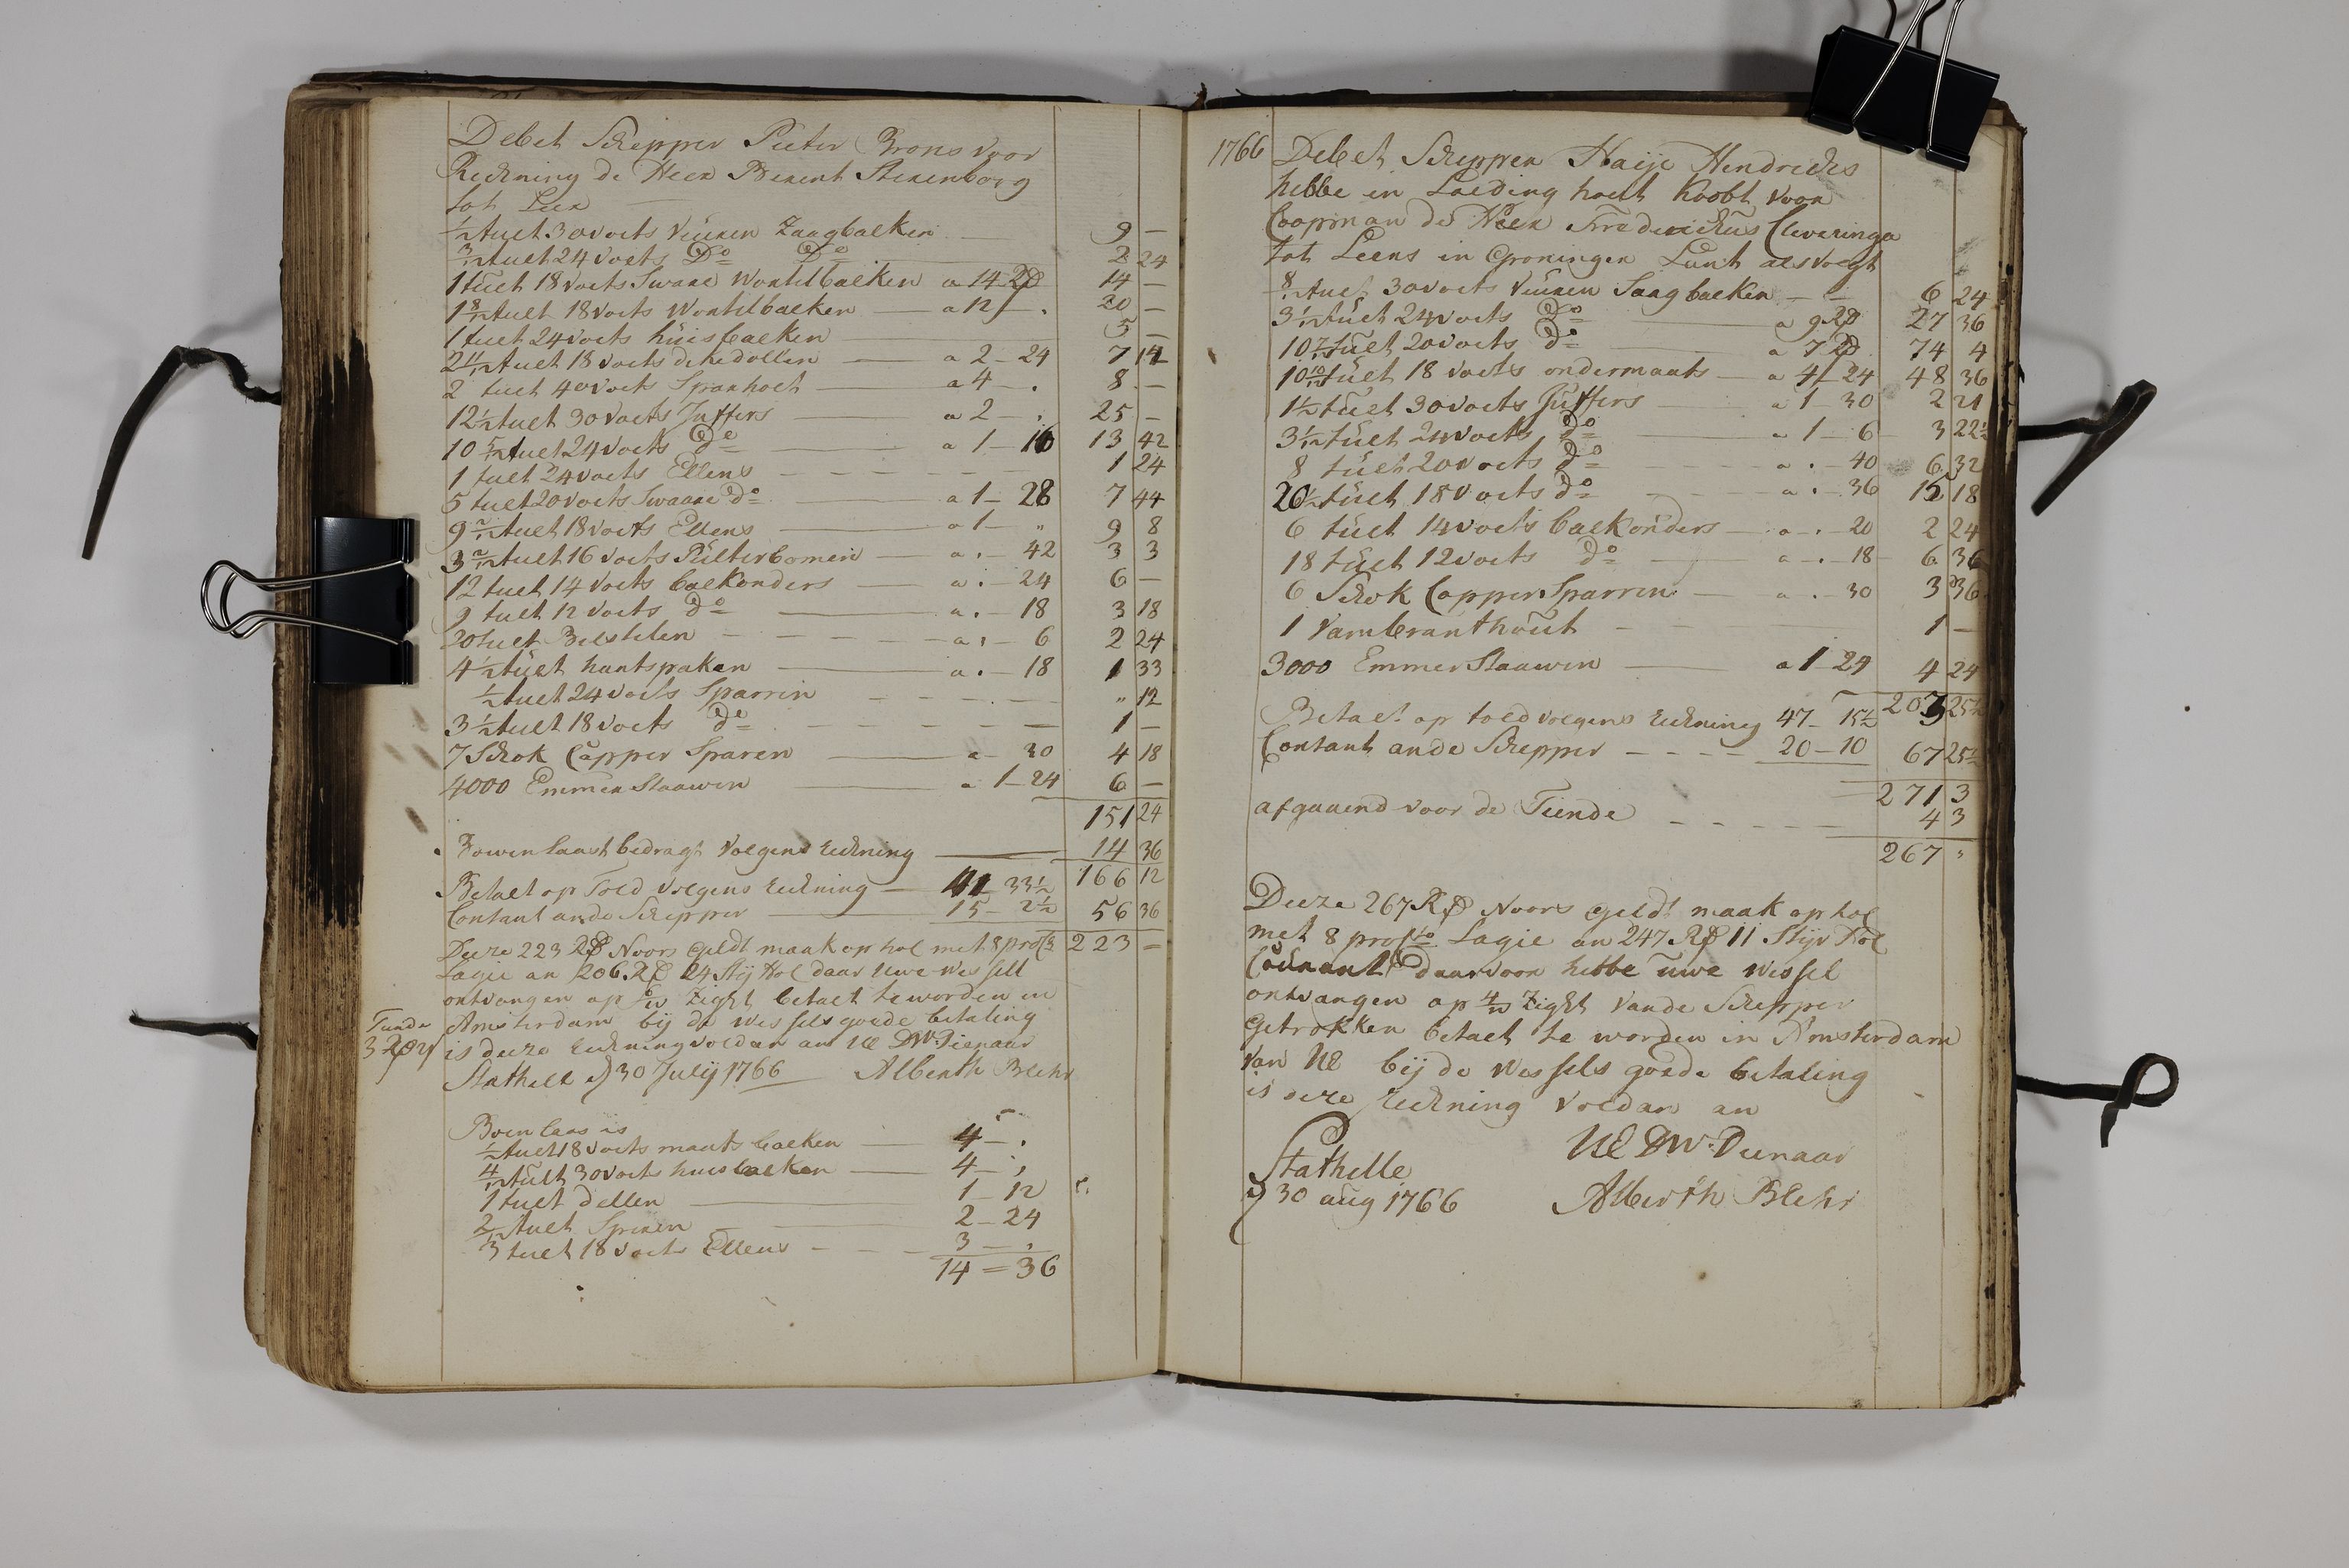 Debet Schepper Pieter Brons voor
Reckening de Heer Berent Sterenborg
tot Leer
½ tuelt 30 voets Vüüren Zaagbaelken 9 —
3/12 tuelt 24 voets Do Do 2 24
1 tuelt 18 voets Sware Wontelbaelken a 14 Rd 14 —
1 8/12 tuelt 18 voets Wontelbaelken a 12 — . 20 —
1 tuelt 24 voets hüisbaelken 5 —
2 11/12 tuelt 18 voets deledollen a 2 — 24 7 14
2 tuelt 40 voets Sparhoelt a 4 — . 8 —
12½ tuelt 30 voets Juffers a 2 — . 25 —
10 5/12 tuelt 24 voets Do a 1 — 16 13 42
1 tuelt 24 voets Ellens 1 24
5 tuelt 20 voets Swaare do a 1 — 28 7 44
9 2/12 tuelt 18 voets Ellens a 1 — „ 9 8
3 2/12 tuelt 16 voets Pülterbomen a . — 42 3 3
12 tuelt 14 voets baelkonders a . — 24 6 —
9 tuelt 12 voets Do a . — 18 3 18
20 tuelt Bielstelen a . 6 2 24
4½ tüelt hantspaken a . — 18 1 33
½ tuelt 24 voets Sparrin „ 12
3½ tuelt 18 voets do 1 —
7 Schok Capper Sparen a — 30 4 18
4000 Emmer Staawen a 1 — 24 6 —
151 24
Bowenlaast bedragt Volgens reckning 14 36
166 12
Betaelt op Told volgens reckning 41 33½
Contant ande Schepper 15 — 2½ 56 36
Deeze 223 Rd Noors geldt maak op hol met 8 pro Cto 223 =
Lagie an 206 Rd 24 Stij Hol daar Uwe Wessell
ontvangen op 6/w Zight betaelt te worden in
Tiende Amsterdam bij de Wessels goede betaling
3 Rd 24 is deeze reckning voldan an UE DW. Dienaar
Stathelt d 30 Julij 1766 Alberth Blehr
Bowenlaas is
½ tuelt 18 voets maats baelken 4 — .
4/12 tüelt 30 voets huisbaelken 4 — ,
1 tuelt dellen 1 — 12
2/12 tuelt Spieren 2 — 24
3 tuelt 18 voets Ellens 3 — ,
14 = 36
1766 Debet Schepper Haije Hendrickes
hebbe in Laeding hoelt Koobt voor
Coopman de Heer Fredericküs Cleveringa
tot Leens in Groningen Lant als volgt
8/12 tuelt 30 voets Vüüren Saagbaelken 6 24
3 1/12 tüelt 24 voets Do a 9 Rd 27 36
10 7/12 tüelt 20 voets do a 7 Rd 74 4
10 10/12 tüelt 18 voets ondermaats a 4 — 24 48 36
1½ tuelt 30 voets Juffers a 1 — 30 2 21
3 1/12 tüelt 24 voets Do a 1 — 6 3 22½
8 tüelt 20 voets Do a . — 40 6 32
20½ tüelt 18 voets do a . — 36 15 18
6 tüelt 14 voets baelkonders a . — 20 2 24
18 tüelt 12 voets do a . — 18 6 36
6 Schok Capper Sparren a . — 30 3 36
1 Vambranthout 1 —
3000 Emmer Staawen a 1 24 4 24
203 25½
Betaelt op told volgens reckning 47 — 15½
Contant ande Schepper 20 — 10 67 25½
271 3
afgaaend voor de Tiende 4 3
267 „
Deeze 267 Rd Noors geldt maak op hol
met 8 pro Cto Lagie an 247 Rd 11 Stijv Hol
Courant daarvoor hebbe uwe Wessel
ontvangen op 4/w Zight Vande Schepper
Getrokken betaelt te worden in Amsterdam
Van UE bij de Wessels goede betaling
is deze reckning voldan an
UE DW. Dienaar
Stathelle
d 30 aug 1766 Alberth Blehr